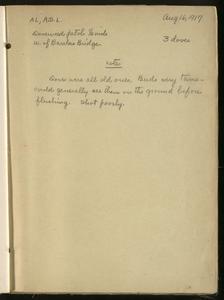 AL, ASL
Aug 16, 1919
Reserved patch Seeds
w. of Barelas Bridge
3 doves
Note
Doves were all old ones. Birds very tame -
could generally see them on the ground before
flushing. Shot poorly.